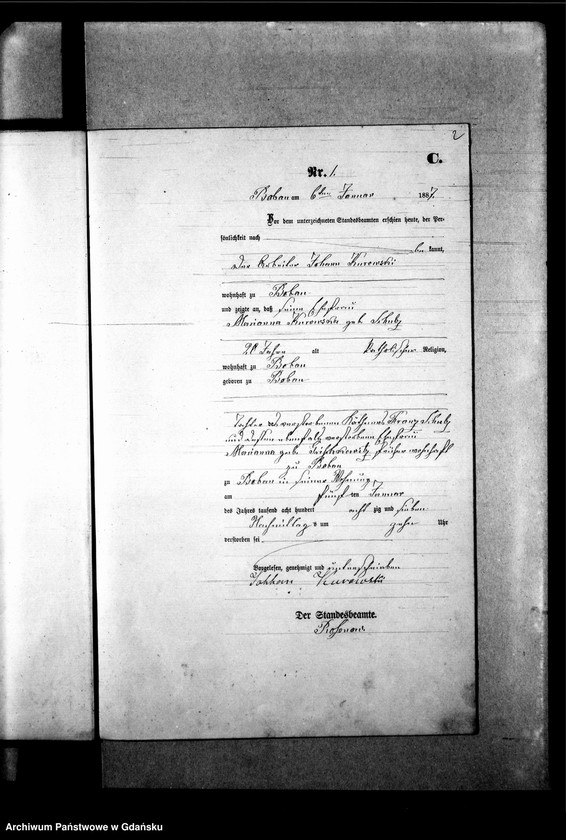 2
C.
Nr. 1.
Boban am 6ten Januar 1887.
Vor dem unterzeichneten Standesbeamten erschien heute, der Per-
sönlichkeit nach
be kannt,
der Arbeiter Johann Kurowski
wohnhaft zu Boban
und zeigte an, daß seine Ehefrau
Marianna Kurowski geb. Schulz
Jahre alt katholischer Religion,
wohnhaft zu Boban
geboren zu Boban
Tochter des verstorbenen Käthners Franz Schulz
und dessen ebenfalls verstorbenen Ehefrau
Marianna geb. früher wohnhaft
zu Boban
zu Boban in seiner Wohnung
am fünf ten Januar
des Jahres tausend acht hundert acht zig und sieben
Nachmittag s um zehn Uhr
verstorben sei.
Vorgelesen, genehmigt und unterschrieben
Johann Kurowski
Der Standesbeamte.
Archiwum Państwowe w Gdańsku